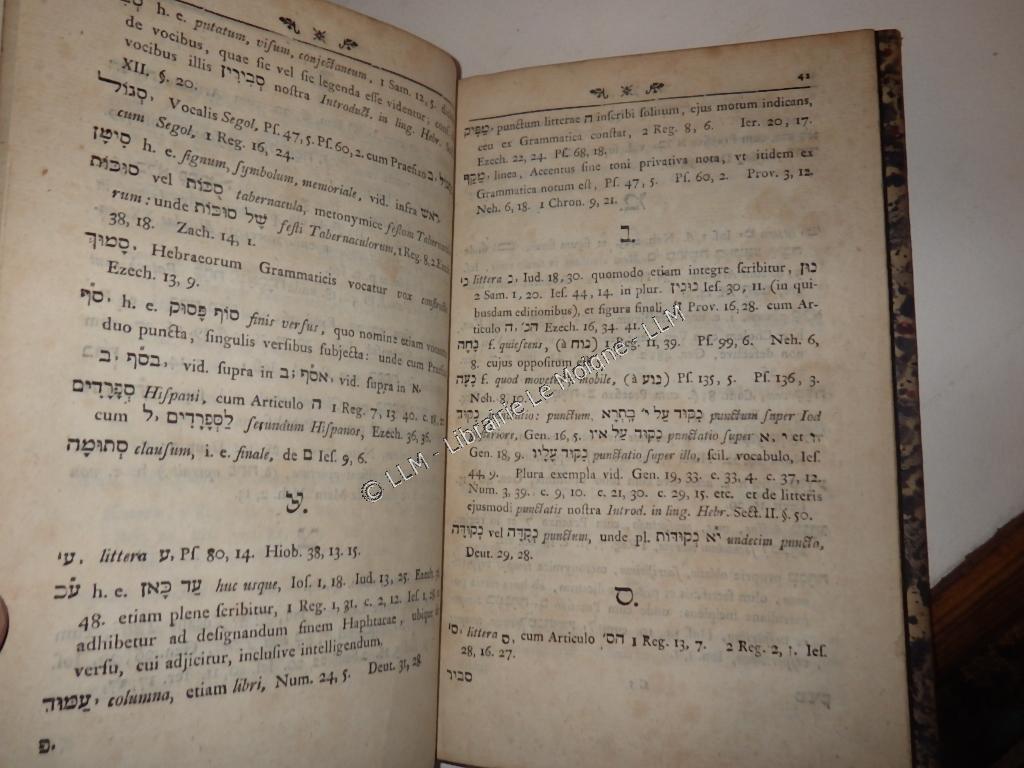 h. e. putatum, visum, conjectaneum, 1 Sam. 12, 5.
de vocibus, quae sic vel sic legenda esse videntur;
vocibus illis סְבִירִין nostra Introduct. in ling. Hebr.
XII. §. 20.
סְגוֹל, Vocalis Segol, Ps. 47, 5. Ps. 60, 2. cum Praefixo ב,
cum Segol, 1 Reg. 16, 24.
סִימָן h. e. signum, symbolum, memoriale, vid. infra ראש
סוּכּוֹת vel סֻכּוֹת tabernacula, metonymice festum Taberna-
rum: unde שֶׁל סוּכּוֹת festi Tabernaculorum, 1 Reg. 8, 2
38, 18. Zach. 14, 1.
סָמוּךְ, Hebraeorum Grammaticis vocatur vox
Ezech. 13, 9.
h. e. סוֹף פָּסוּק finis versus, quo nomine etiam
duo puncta, singulis versibus subjecta: unde cum
vid. supra in ב; vid. supra in א.
סְפָרַדִים Hispani, cum Articulo ה 1 Reg. 7, 13. 40. c. 18,
cum ל, לִסְפָרַדִים secundum Hispanos, Ezech. 36, 36.
סְתוּמָה clausum, i. e. finale, de ם Ies. 9, 6.
ע.
עי, littera ע, Ps. 80, 14. Hiob. 38, 13. 15.
h. e. עַד כָּאן huc usque, Ios. 1, 18. Iud. 13, 25. Ezech.
48. etiam plene scribitur, 1 Reg. 1, 31. c. 2, 12. Ies. 1,
adhibetur ad designandum finem Haphtacae, ubique
versu, cui adjicitur, inclusive intelligendum.
עַמּוּד, columna, etiam libri, Num. 24, 5. Deut. 31, 28
פ.
41
מַפִּיק, punctum litterae ה inscribi solitum, ejus motum indicans,
ceu ex Grammatica constat, 2 Reg. 8, 6. Ier. 20, 17.
Ezech. 22, 24. Ps. 68, 18.
מַקֵּף, linea, Accentus sine toni privativa nota, vt itidem ex
Grammatica notum est, Ps. 47, 5. Ps. 60, 2. Prov. 3, 12.
Neh. 6, 18. 1 Chron. 9, 21.
נ.
littera נ, Iud. 18, 30. quomodo etiam integre scribitur, נוּן,
2 Sam. 1, 20. Ies. 44, 14. in plur. נוּנִין Ies. 30, 11. (in qui-
busdam editionibus), et figura finali, Prov. 16, 28. cum Ar-
ticulo ה, Ezech. 16, 34. 41.
נָחָה f. quiescens, (à נוּחַ) 1 Reg. 11, 39. Ps. 99, 6. Neh. 6,
8. cujus oppositum est
נָעָה f. quod movetur, mobile, (à נוּעַ) Ps. 135, 5. Ps. 136, 3.
Neh. 8, 10.
נִקּוּד punctatio: punctum, נִקּוּד עַל י בַּתְרָא punctum super Iod
posteriore, Gen. 16, 5. נִקּוּד עַל איו punctatio super א, י et ו.
Gen. 18, 9. נִקּוּד עָלָיו punctatio super illo, scil. vocabulo, Ies.
44, 9. Plura exempla vid. Gen. 19, 33. c. 33, 4. c. 37, 12.
Num. 3, 39. c. 9, 10. c. 21, 30. c. 29, 15. etc. et de litteris
ejusmodi punctatis nostra Introd. in ling. Hebr. Sect. II. §. 50.
נְקוּדָה vel נְקֻדָּה punctum, unde pl. יא נְקוּדוֹת undecim puncta,
Deut. 29, 28.
ס.
סי, littera ס, cum Articulo הסי 1 Reg. 13, 7. 2 Reg. 2, Ies.
28, 16. 27.
סביר
© LLM - Librairie Le Moigne - LLM